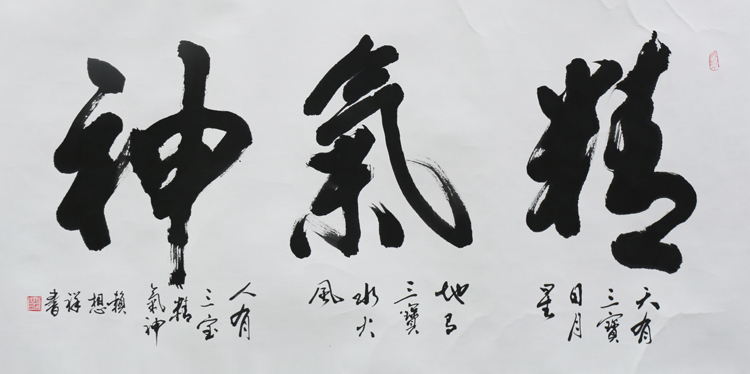 精氣神
天有
三寶
日月
星
地有
三寶
水火
風
人有
三宝
精
氣神
賴
想
祥
書